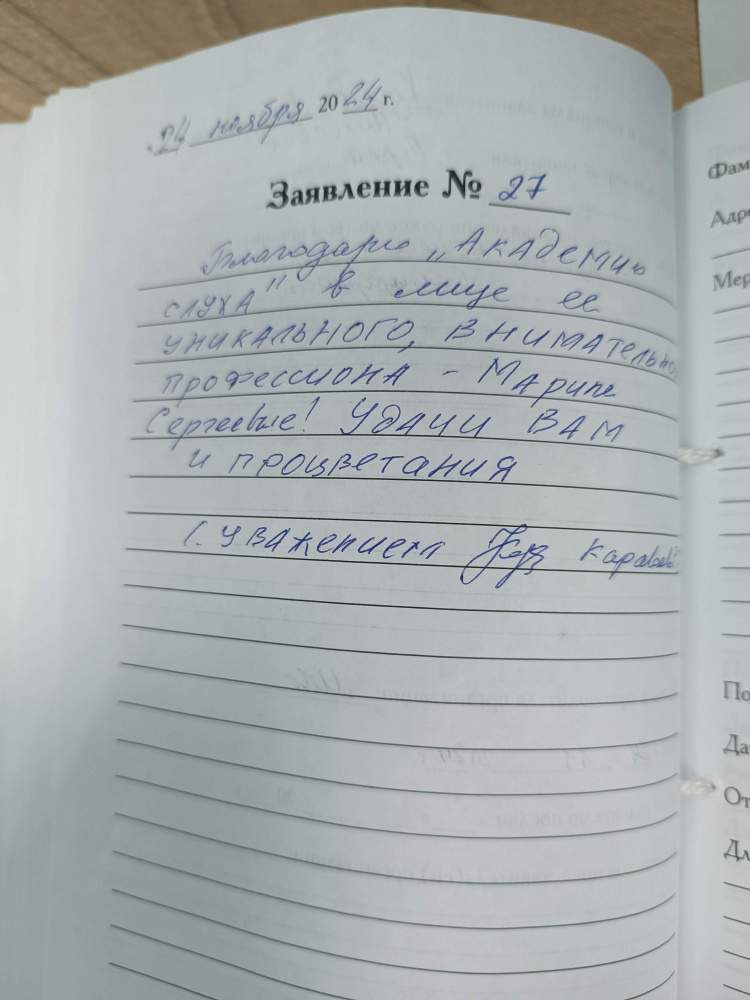 24 ноября 2024 г.
Заявление № 27
Благодарю „Академию
слуха" в лице ее
уникального, внимательного
профессиона - Марине
Сергеевне! Удачи Вам
и процветания
С уважением
Фам
Адре
Мер
По
Да
От
Дл